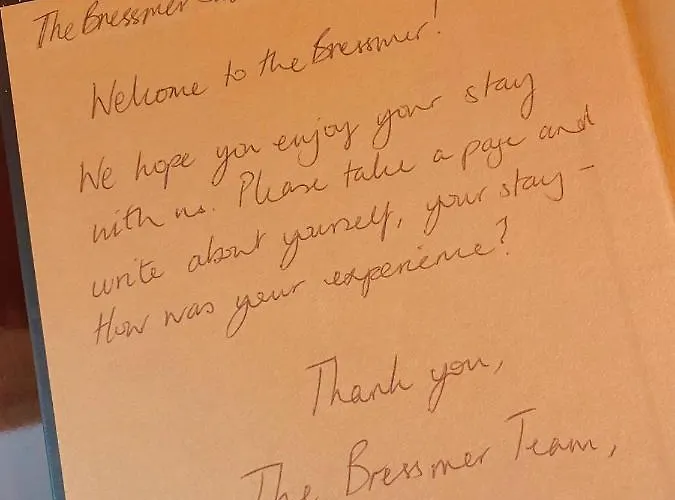 The Bressmer
Welcome to the Bressmer!
We hope you enjoy your stay
with us. Please take a page and
write about yourself, your stay –
How was your experience?
Thank you,
The Bressmer Team,